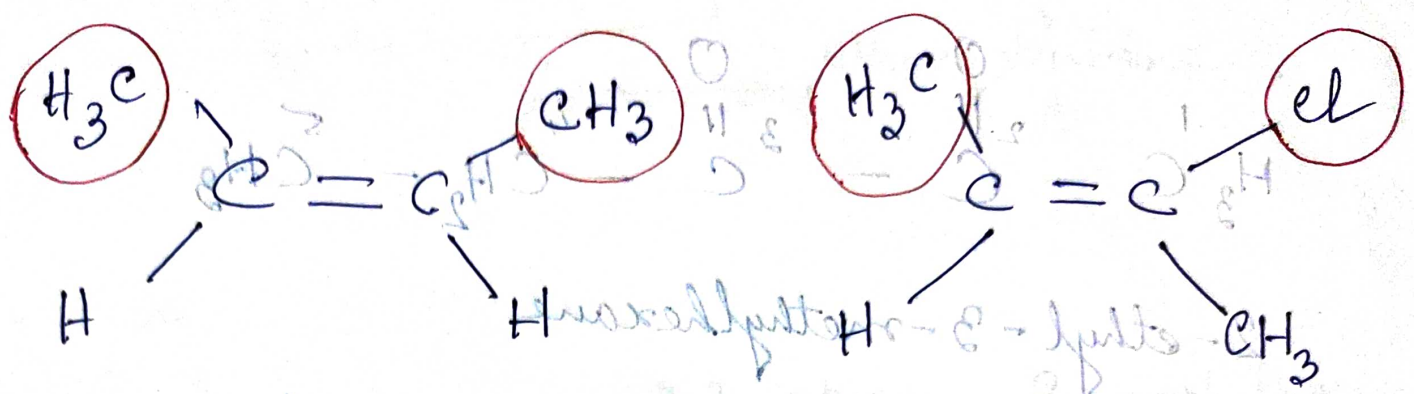 H₃C CH₃ H₃C Cl
C = C C = C
H H H CH₃